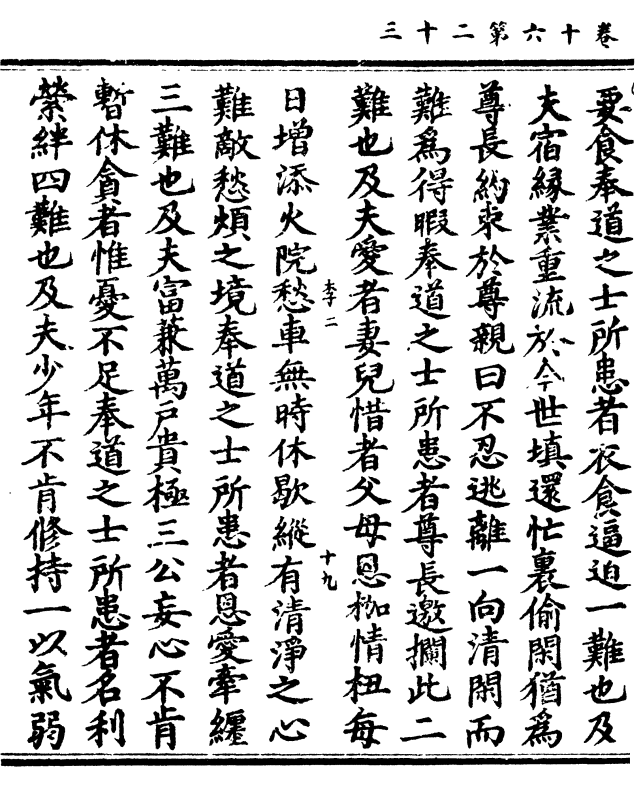 卷十六第二十三
要食奉道之士所患者衣食逼迫一難也及
夫宿緣業重流於今世填還忙裏偷閑猶為
尊長約束於尊親曰不忍逃離一向清閑而
難為得暇奉道之士所患者尊長邀攔此二
難也及夫愛者妻兒惜者父母恩枷情杻每
日增添火院愁車無時休歇縱有清淨之心
李二
十九
難敵愁煩之境奉道之士所患者恩愛牽纏
三難也及夫富兼萬戶貴極三公妄心不肯
暫休貪者惟憂不足奉道之士所患者名利
縈絆四難也及夫少年不肯修持一以氣弱